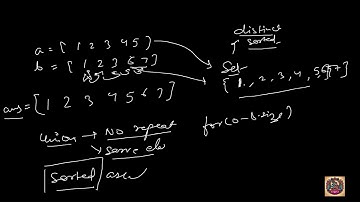 a = [ 1 2 3 4 5 ]
b = [ 1 2 3 6 7 ]
ans = [ 1 2 3 4 5 6 7 ]
Union → NO repeat
[sorted]
distinct
sorted
Set
{ 1, 2, 3, 4, 5
for(0-b.size)